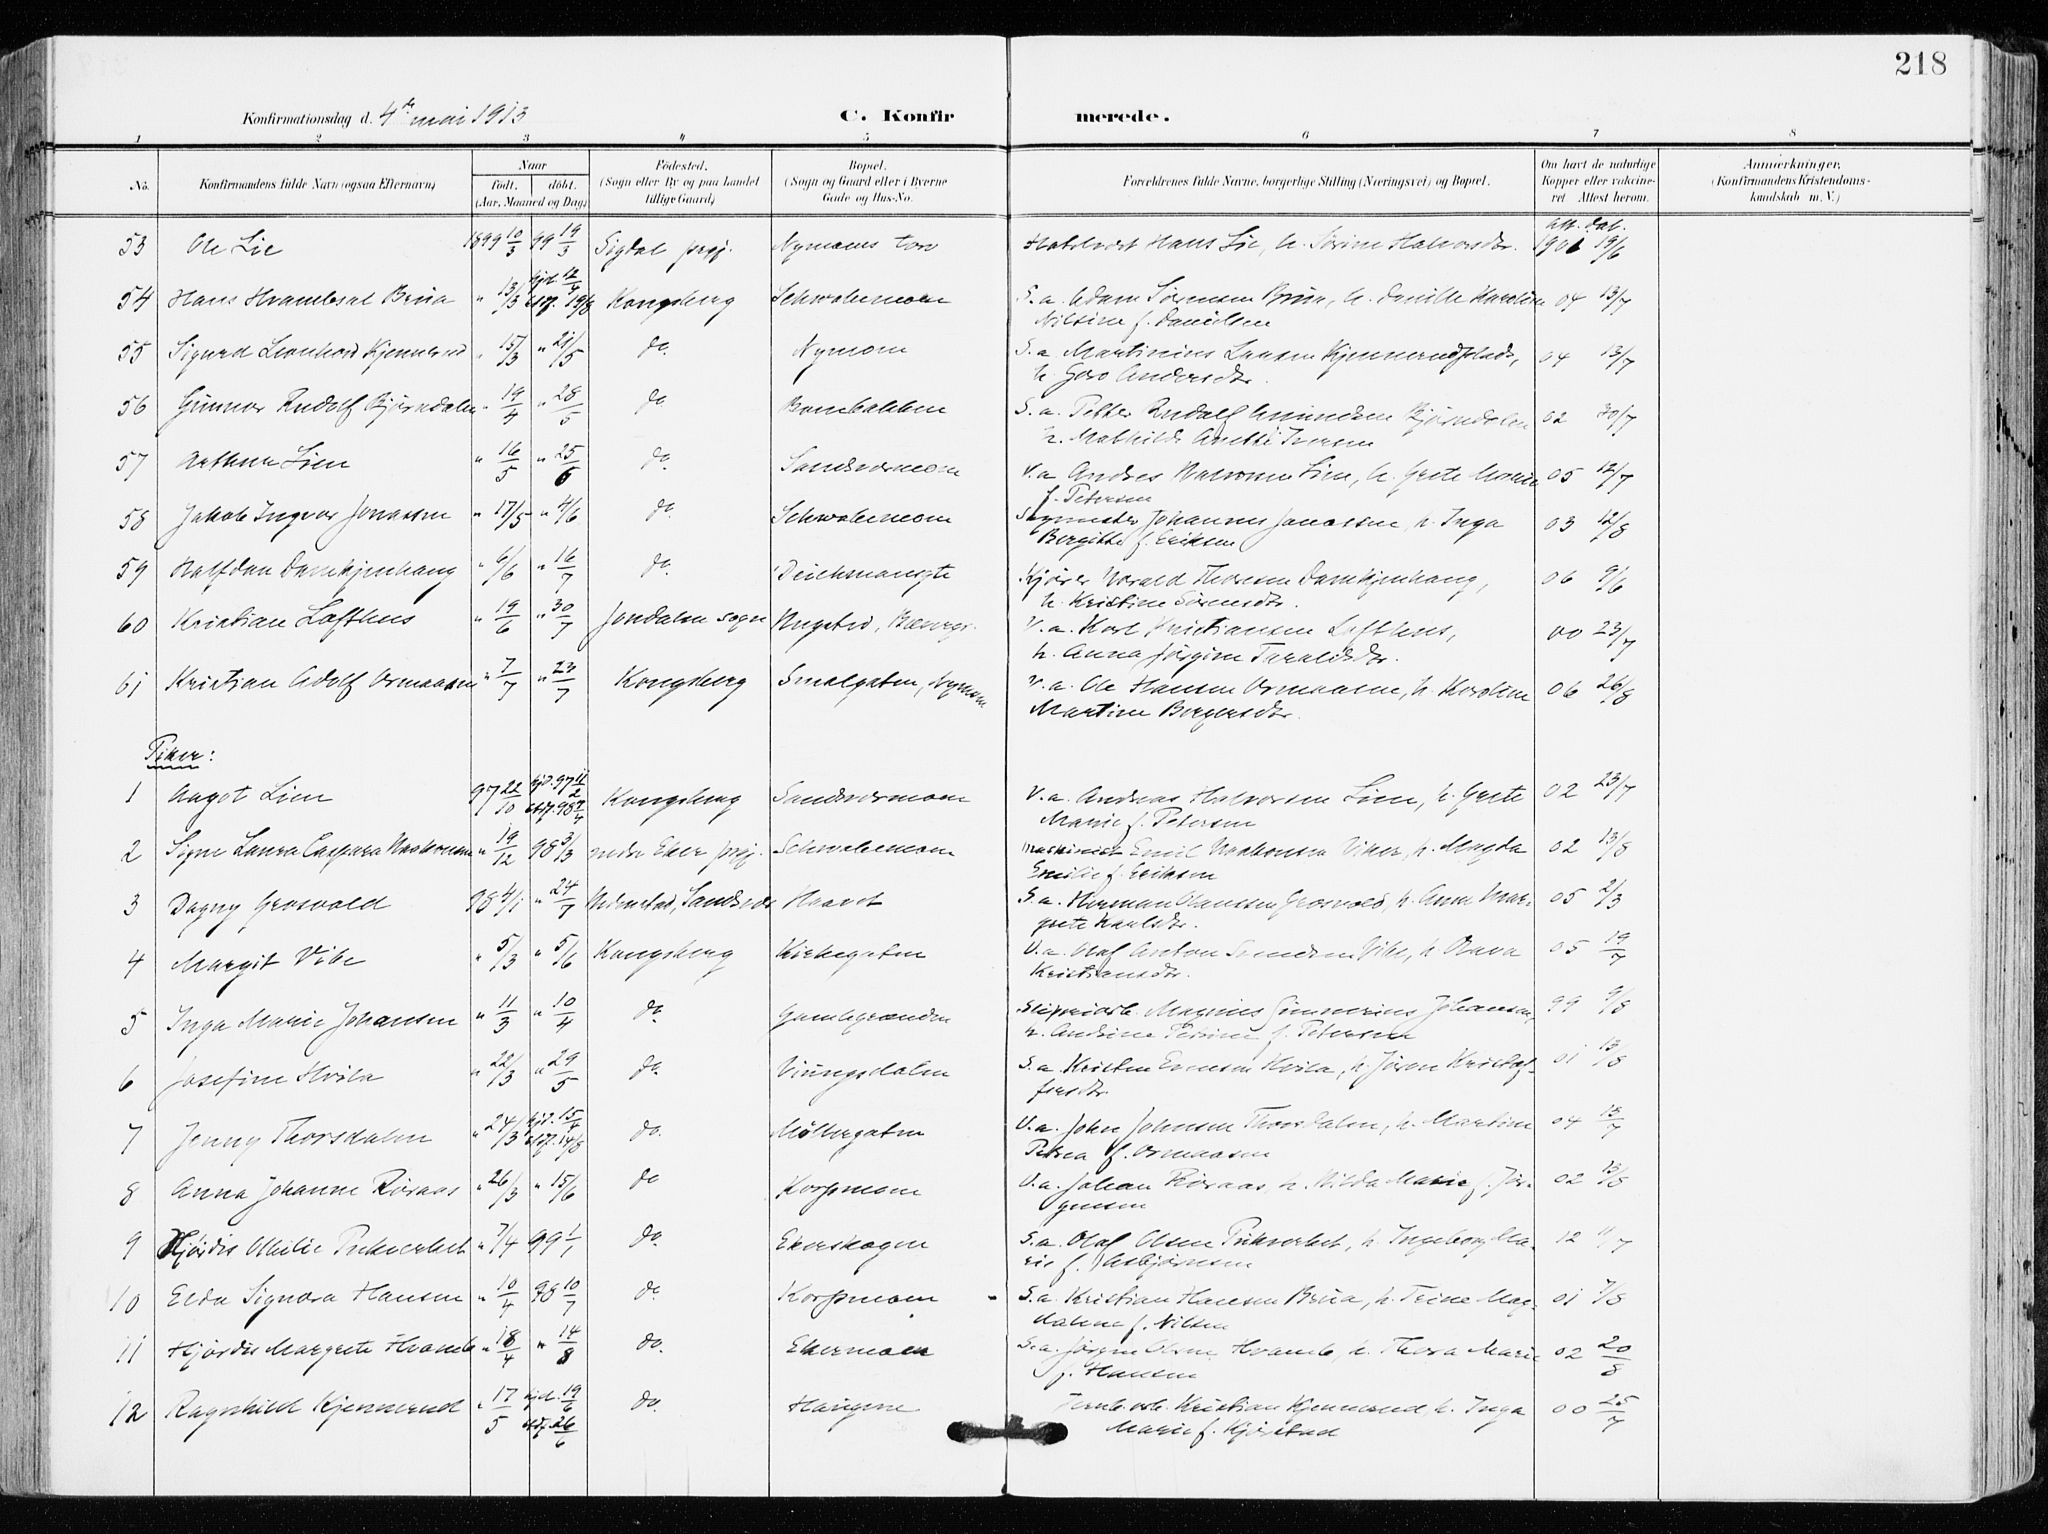 218
Konfirmationsdag d. 4de mai 1913 C. Konfirmerede.
1 2 3 4 5 6 7 8
No. Konfirmandens fulde Navn (ogsaa Efternavn) Naar födt. döbt. (Aar, Maaned og Dag) Födested. (Sogn eller By og paa Landet tillige Gaard) Bopæl. (Sogn og Gaard eller i Byerne Gade og Hus-No. Forældrenes fulde Navne, borgerlige Stilling (Næringsvei) og Bopæl. Om havt de naturlige Kopper eller vakcineret Attest herom. Anmærkninger, (Konfirmandens Kristendomskundskab m. V.)
53 Ole Lie 1899 10/3 99 19/3 Sigdal prgj. Nymoens torv Hans Lie, h. Sørine Halvorsdtr. att. dat. 1906 19/6
54 Hans Hrambsal Brua " 13/3 hjd. 12/4 stdf. 19/8 Kongsberg Schwabemoen S.a. Adam Sørensen Brua, h. Danille Karoline 04 13/7
Nilsine f. Danielsen
55 Sigurd Leonhard Kjennerud " 15/3 " 21/5 do. Nymoen S.a. Martinius Larsen Kjennerudplads, 04 13/7
h. Goro Andersdtr.
56 Gunnar Rudolf Bjørndalen " 19/4 " 28/5 do Bombakken S.a. Petter Rudolf Amundsen Bjørndalen 02 30/7
h. Mathilde Anette Iversen
57 Arthur Lien " 16/5 " 25/6 do. Sandsværmoen V.a. Andreas Halvorsen Lien, h. Grete Marie 05 12/7
f. Petersen
58 Jakob Ingvar Jonassen " 17/5 " 4/6 do. Schwabemoen Sagmester Johannes Jonassen, h. Inga 03 12/8
Bergitte f. Eriksen
59 Halfdan Damkjenhaug " 6/6 " 16/7 do. Deichmansgte Kjører Harald Thoresen Damkjenhaug, 06 9/6
h. Kristine Sørensdtr.
60 Kristian Lofthus " 19/6 " 30/7 Jondalen sogn Nysted, V.a. Karl Kristiansen Lofthus, 00 23/7
h. Anna Jørgine Taraldsdtr.
61 Kristian Adolf Ormaasen " 7/7 " 23/7 Kongsberg Smalgaten, Nymoen V.a. Ole Hansen Ormaasen, h. Karoline 06 26/8
Martine Borgersdtr.
Piker:
1 Aagot Lien 97 22/10 hjd. 97 11/2 stdf. 98 7/4 Kongsberg Sandsværmoen V.a. Andreas Halvorsen Lien, h. Grete 02 23/7
Marie f. Petersen
2 Signe Laura Caspara Haakonsen " 19/12 98 3/3 nedre Eker prgj. Schwabemoen Maskinist Emil Haakonsen Viker, h. Magda 02 13/8
Emilie f. Eriksen
3 Dagny Grosvold 98 4/1 " 24/7 Hedenstad, Sandsvær Haavet S.a. Herman Olaussen Grosvold, h. Anne Mar- 05 2/3
grete Karlsdtr.
4 Margit Vibe " 5/3 " 5/6 Kongsberg Kirkegaten V.a. Olaf Anton Vibe, h. Kristiansdtr. 05 19/7
5 Inga Marie Johansen " 11/3 " 10/4 do. Gamlegrænden Sliperiarb. Magnus Gunnerius Johansen, 99 9/8
h. Andrine Petrine f. Petersen
6 Josefine Hvila " 22/3 " 29/5 do. Vinngsdalen S.a. Kristen Evensen Hvila, h. Jøran Kristof- 01 13/8
fersdtr.
7 Jenny Thorsdalen " 24/3 hjd. 15/4 stdf. 14/8 do. Møllergaten V.a. John Johnsen Thorsdalen, h. Martine 04 13/7
Petrea f. Ormaasen
8 Anna Johanne Røraas " 26/3 " 15/6 do Korpmoen V.a. Johan Røraas, h. Hilda Marie f. Jør- 02 13/8
gensen
9 Hjørdis Otilie Pukverket " 7/4 99 1/1 do. Ekerskogen S.a. Olaf Olsen Pukverket, h. Ingeborg Ma- 12 11/7
rie f. Asbjørnsen
10 Elda Signora Hansen " 10/4 98 10/7 do. Korpmoen S.a. Kristian Hansen Brua, h. Trine Mag- 01 7/8
dalene f. Nilsen
11 Hjørdis Margrete Hvamb " 18/4 " 14/8 do. Ekermoen S.a. Jørgen Olsen Hvamb, h. Thora Marie 02 20/8
f. Hansen
12 Ragnhild Kjennerud " 17/5 hjd. 19/6 stdf. 26/6 do. Haugene Jernb. arb. Kristian Kjennerud h. Inga 00 25/7
Marie f. Kjørstad